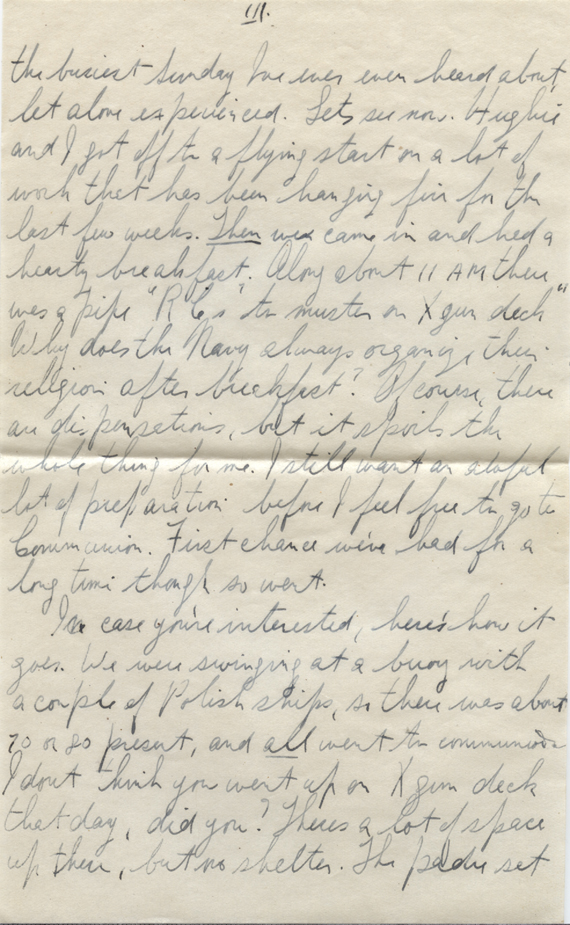 III.
the busiest Sunday I've ever even heard about,
let alone experienced. Lets see now. Hughie
and I got off to a flying start on a lot of
work that has been hanging fire for the
last few weeks. Then we came in and had a
hearty breakfast. Along about 11 AM there
was a pipe "R C's to muster on X gun deck"
Why does the Navy always organize their
religion after breakfast? Of course, there
are dispensations, but it spoils the
whole thing for me. I still want an awful
lot of preparation before I feel free to go to
Communion. First chance we've had for a
long time though so went.
In case you're interested, here's how it
goes. We were swinging at a buoy with
a couple of Polish ships, so there was about
70 or 80 present, and all went to communion
I dont think you went up on X gun deck
that day, did you? Theres a lot of space
up there, but no shelter. The padre set